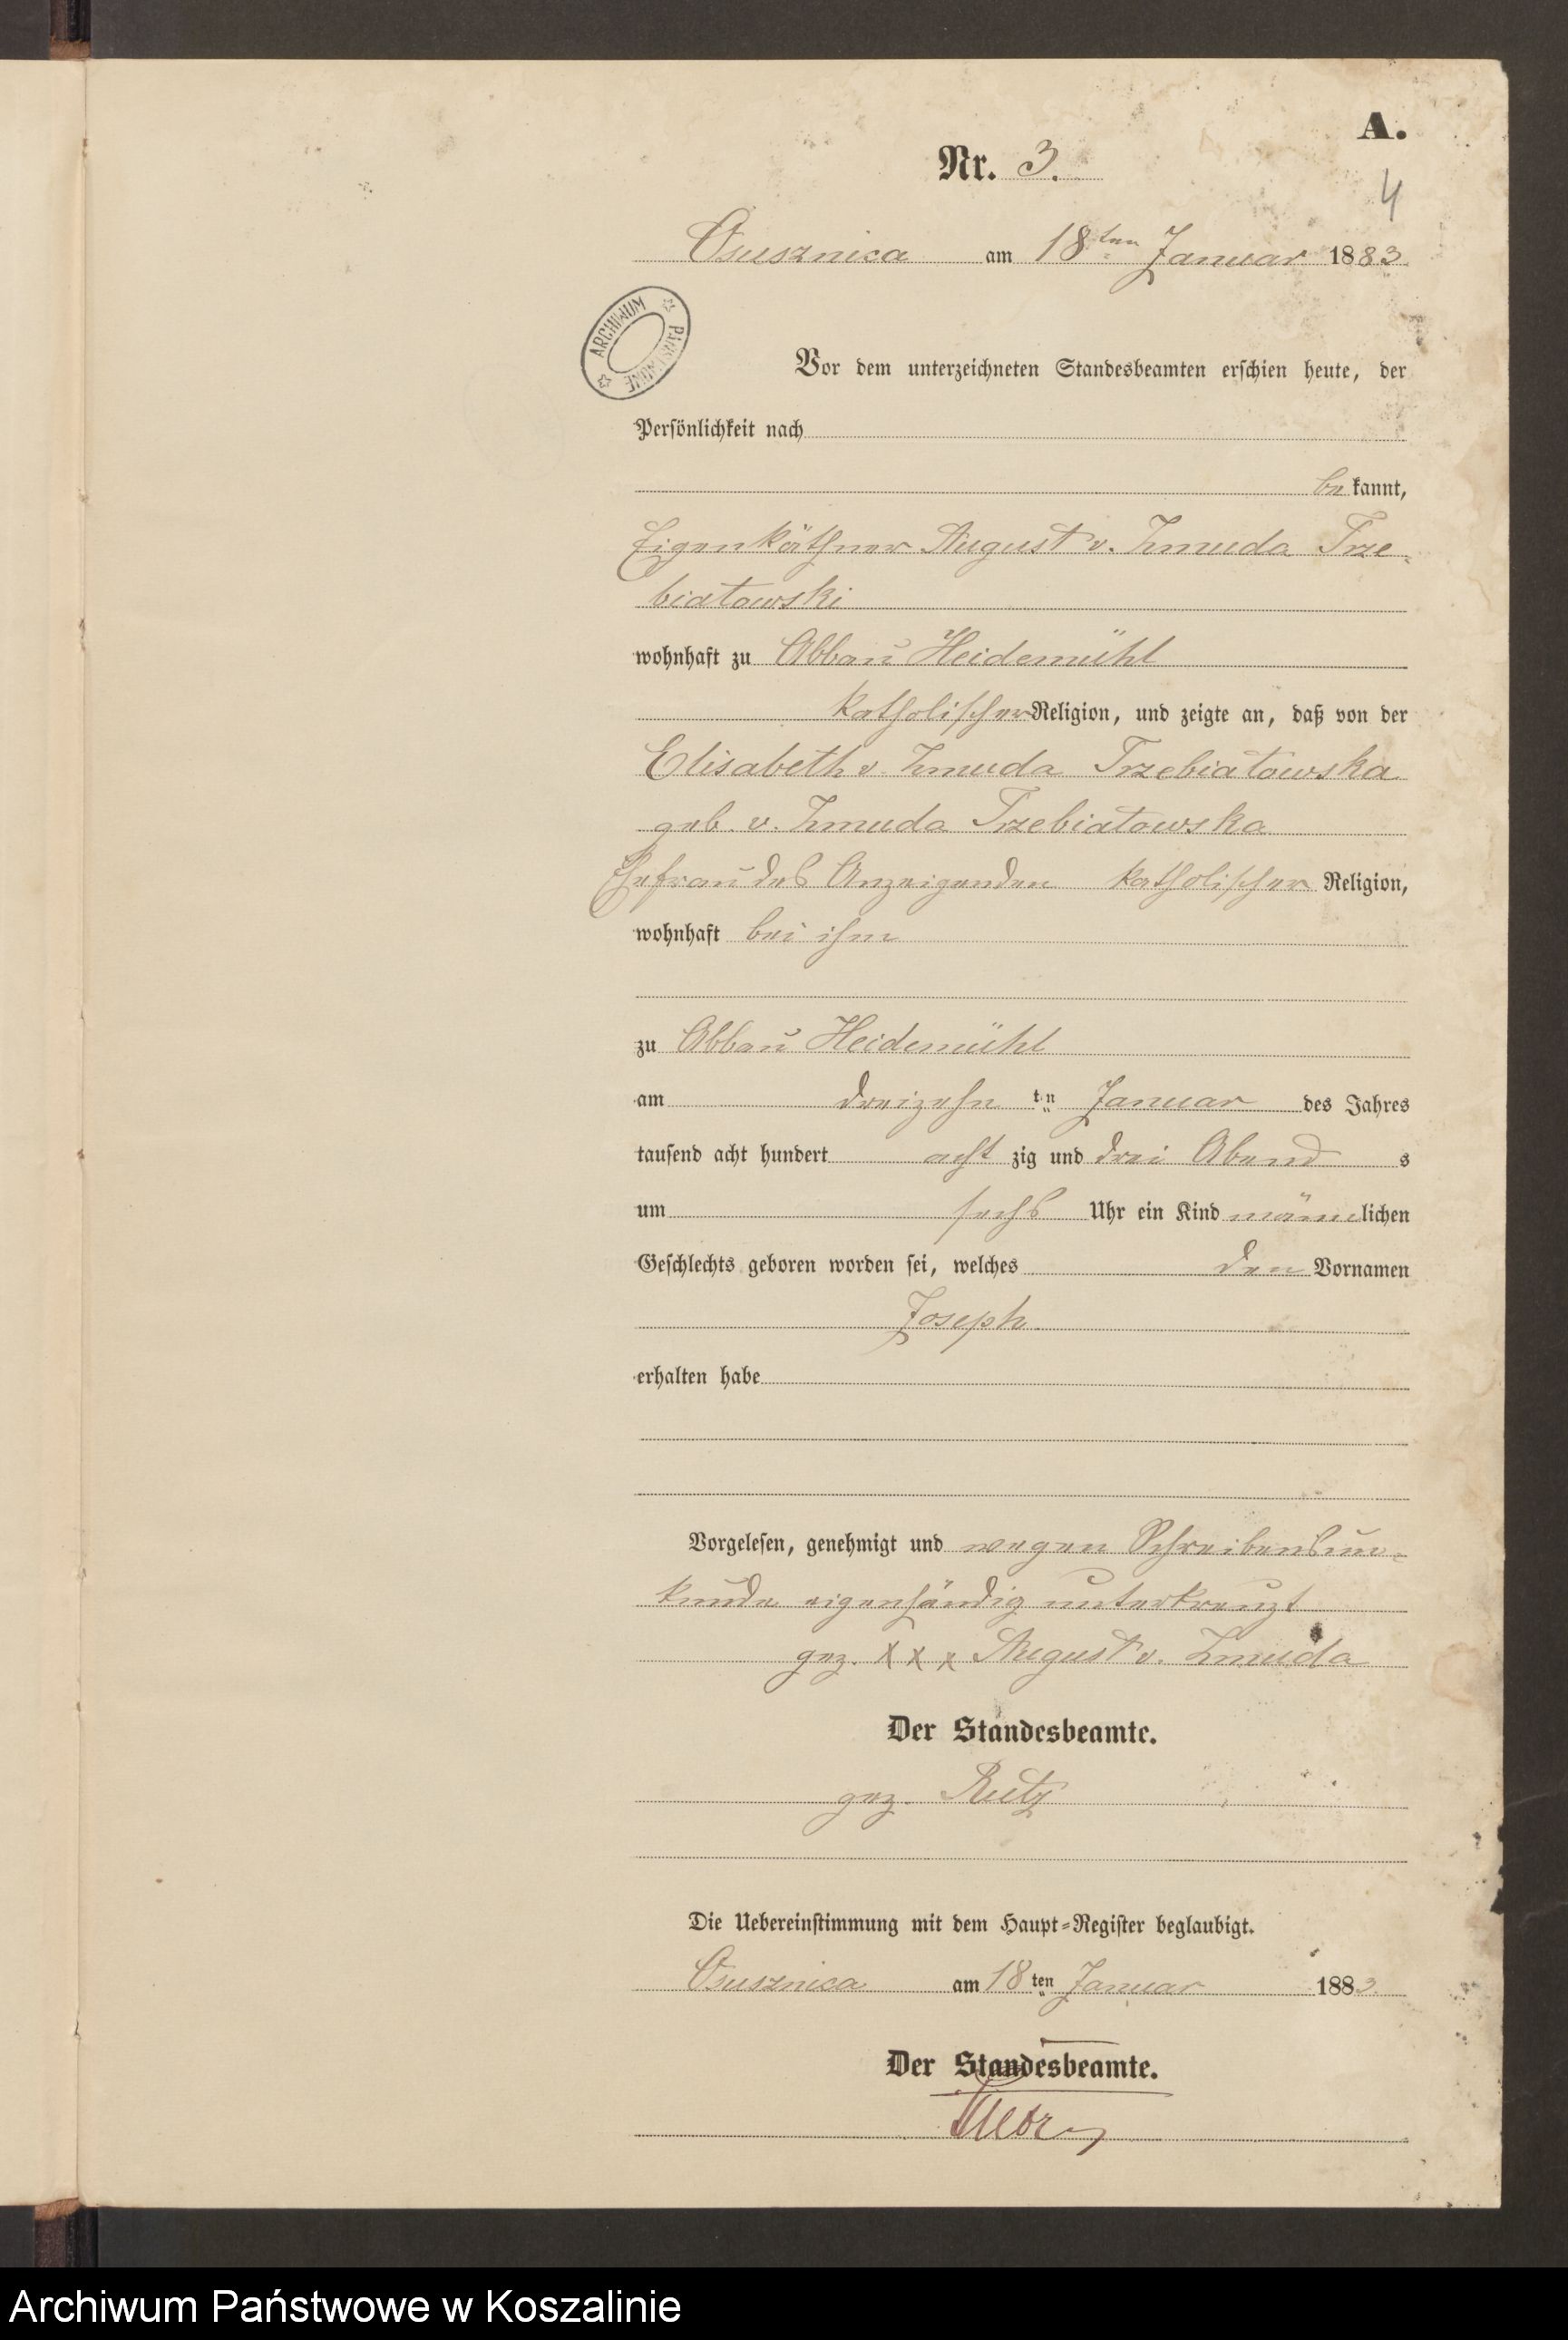 A.
Nr. 3.
4
Osusznica am 18ten Januar 1883
ARCHIWUM PAŃSTWOWE
Vor dem unterzeichneten Standesbeamten erschien heute, der
Persönlichkeit nach
bekannt,
Eigenkäthner August v. Zmuda Trze-
biatowski
wohnhaft zu Abbau Heidemühl
katholischer Religion, und zeigte an, daß von der
Elisabeth v. Zmuda Trzebiatowska
geb. v. Zmuda Trzebiatowska
Ehefrau des Anzeigenden katholischer Religion,
wohnhaft bei ihm
zu Abbau Heidemühl
am dreizehn ten Januar des Jahres
tausend acht hundert acht zig und drei Abend s
um sechs Uhr ein Kind männlichen
Geschlechts geboren worden sei, welches den Vornamen
Joseph
erhalten habe
Vorgelesen, genehmigt und wegen Schreibensun-
kunde eigenhändig unterkreuzt
gez. x x x August v. Zmuda
Der Standesbeamte.
gez. Rutz
Die Uebereinstimmung mit dem Haupt-Register beglaubigt.
Osusznica am 18ten Januar 1883.
Der Standesbeamte.
Archiwum Państwowe w Koszalinie